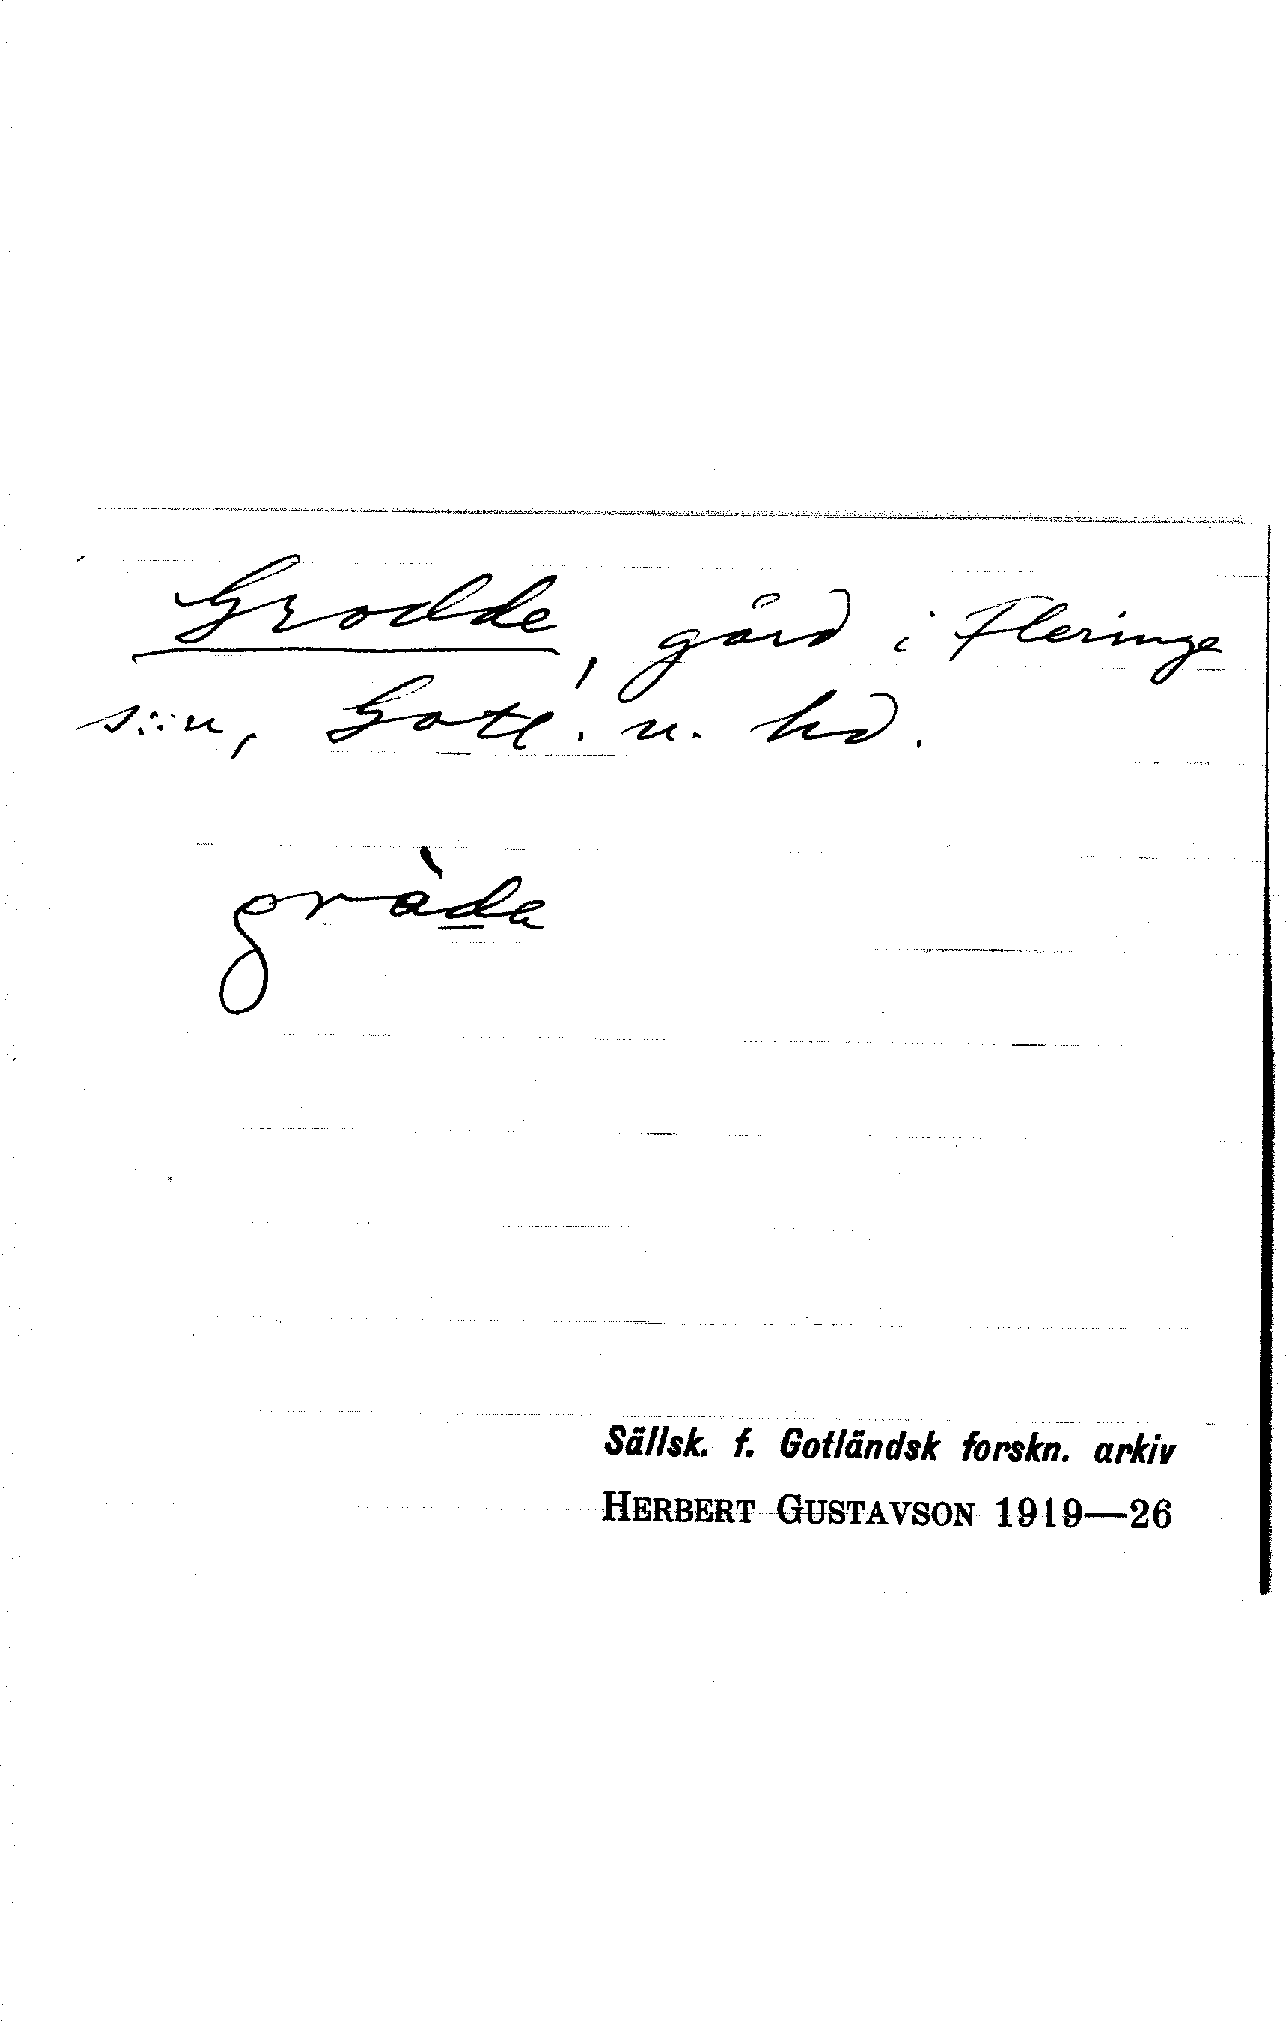 Grodde, gård i Fleringe
s:n, Gotl. n. hd.
gràda
Sällsk. f. Gotländsk forskn. arkiv
HERBERT GUSTAVSON 1919—26